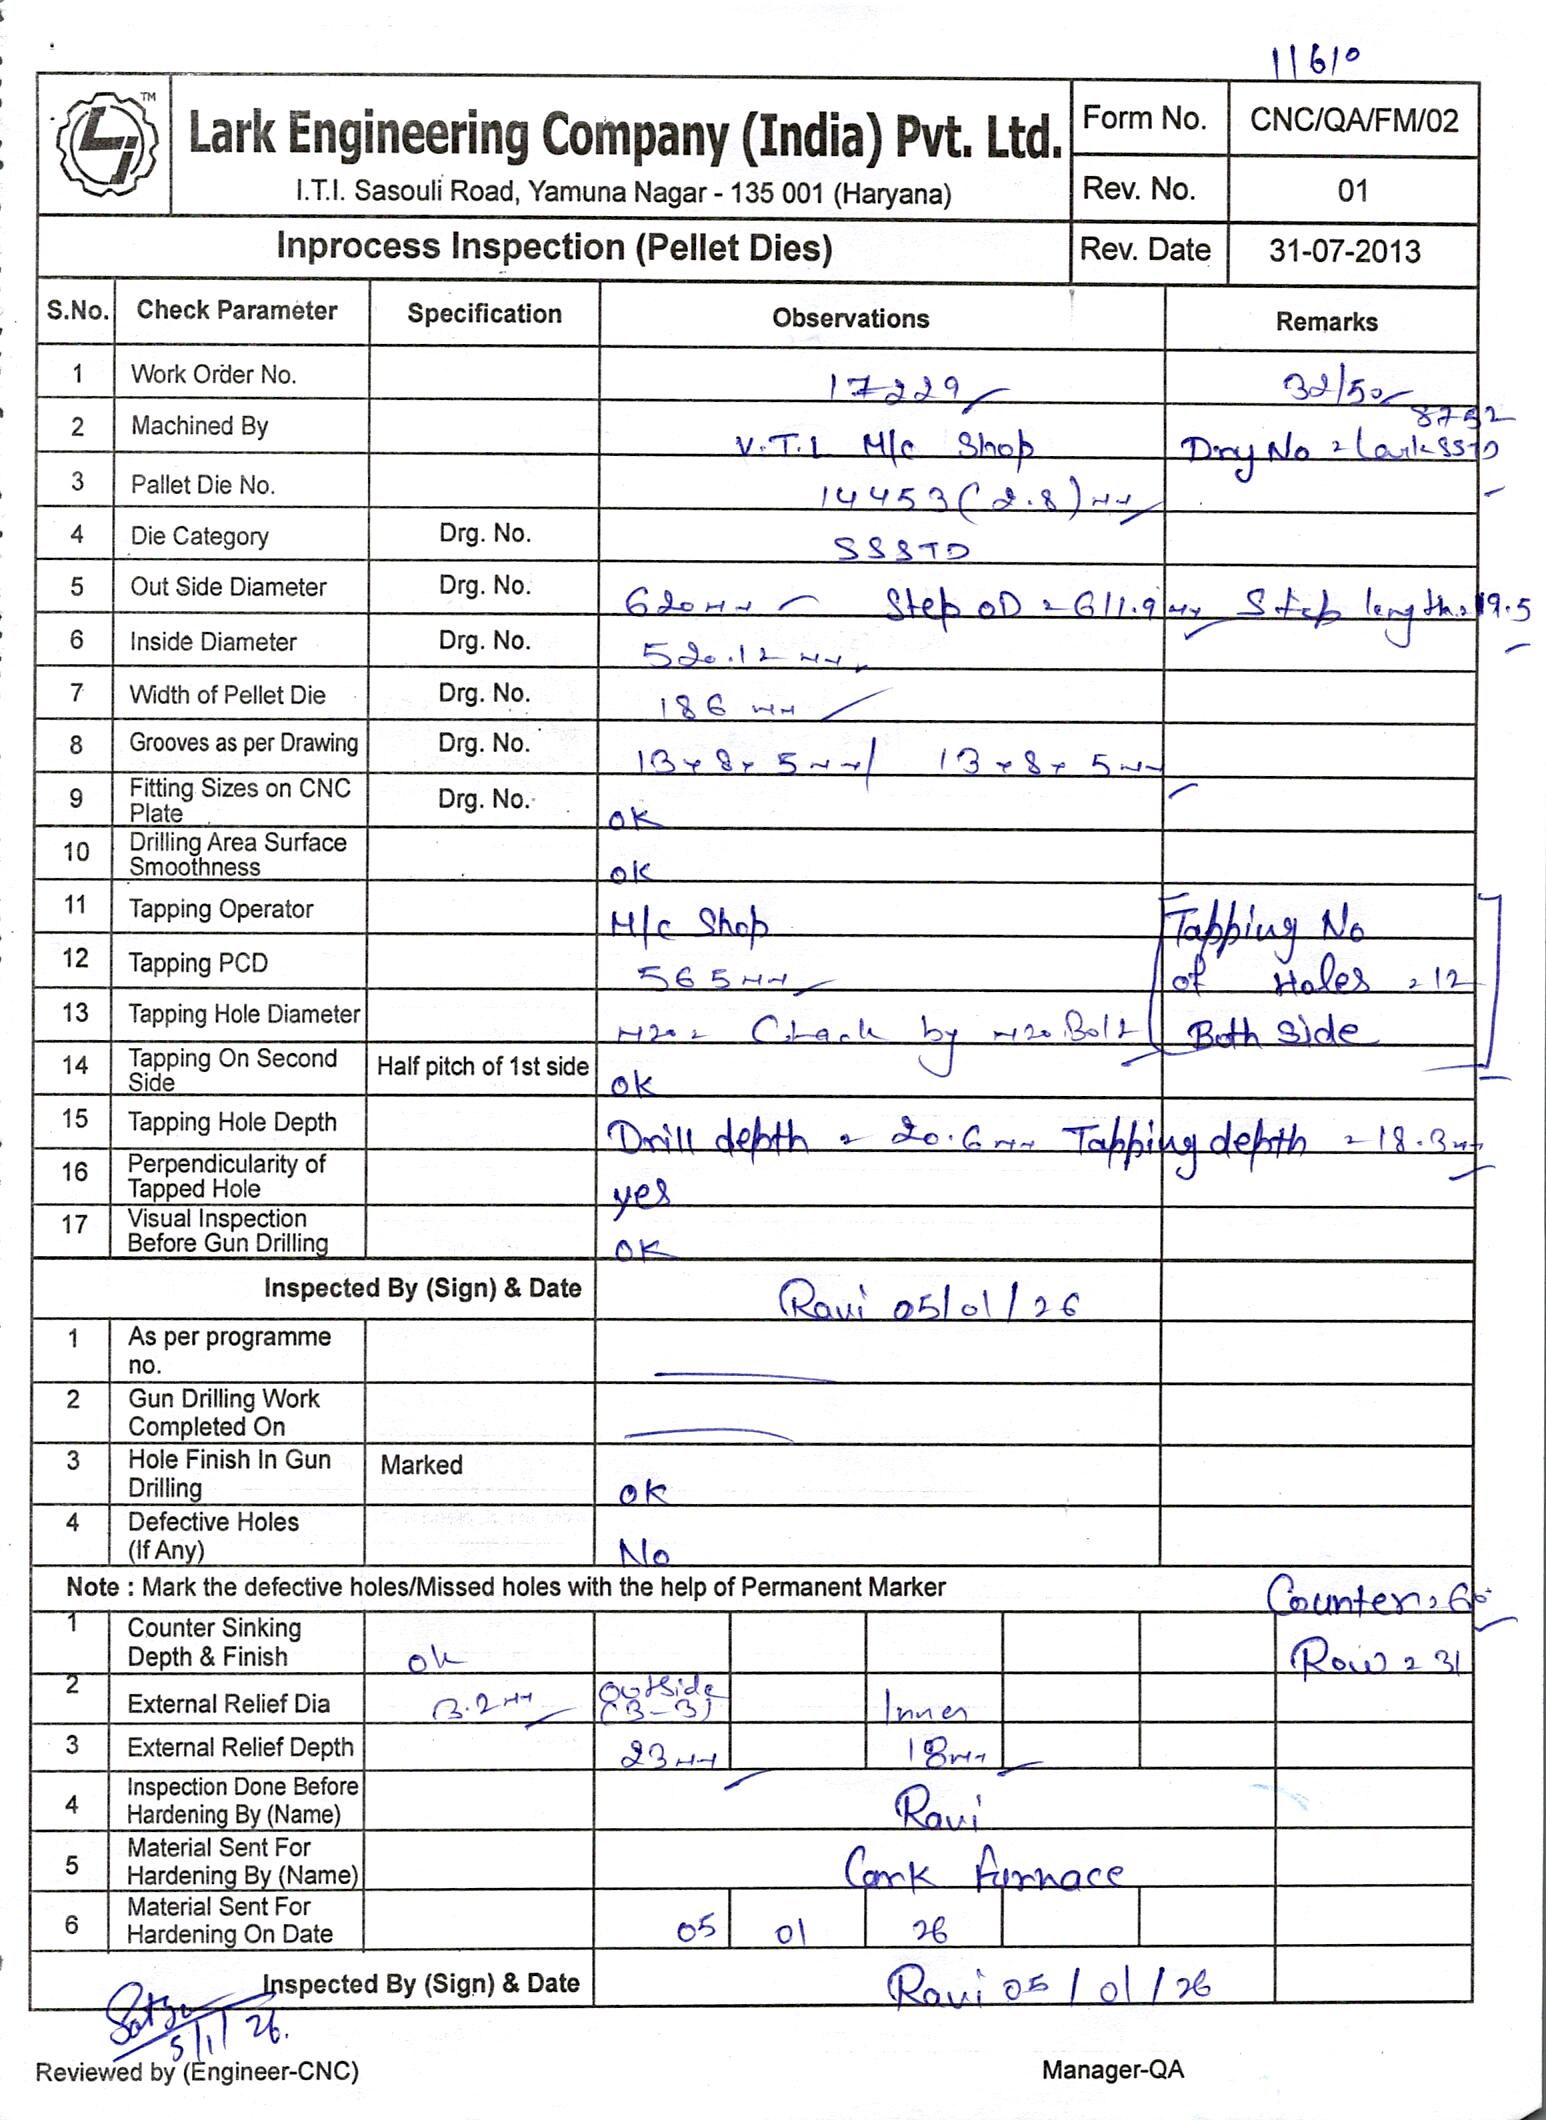 11610
TM
Lark Engineering Company (India) Pvt. Ltd.
I.T.I. Sasouli Road, Yamuna Nagar - 135 001 (Haryana)
Form No. CNC/QA/FM/02
Rev. No. 01
Inprocess Inspection (Pellet Dies) Rev. Date 31-07-2013
S.No. Check Parameter Specification Observations Remarks
1 Work Order No. 17229 32/50
8752
2 Machined By V.T.L M/c Shop Drg No = Lark SSTD
3 Pallet Die No. 14453 (2.8) mm
4 Die Category Drg. No. SSSTD
5 Out Side Diameter Drg. No. 620 mm Step OD = 611.9 mm Step length = 19.5
6 Inside Diameter Drg. No. 520.12 mm
7 Width of Pellet Die Drg. No. 186 mm
8 Grooves as per Drawing Drg. No. 13 x 8 x 5 mm / 13 x 8 x 5 mm
9 Fitting Sizes on CNC Plate Drg. No. OK
10 Drilling Area Surface Smoothness OK
11 Tapping Operator M/c Shop Tapping No
12 Tapping PCD 565 mm of Holes = 12
13 Tapping Hole Diameter M20 = Check by M20 Bolt Both Side
14 Tapping On Second Side Half pitch of 1st side OK
15 Tapping Hole Depth Drill depth = 20.6 mm Tapping depth = 18.3 mm
16 Perpendicularity of Tapped Hole yes
17 Visual Inspection Before Gun Drilling OK
Inspected By (Sign) & Date Ravi 05/01/26
1 As per programme no.
2 Gun Drilling Work Completed On
3 Hole Finish In Gun Drilling Marked OK
4 Defective Holes (If Any) No
Note : Mark the defective holes/Missed holes with the help of Permanent Marker Counter = 60°
1 Counter Sinking Depth & Finish ok Row = 31
2 External Relief Dia 3.2 mm Outside (3-3) Inner
3 External Relief Depth 23 mm 18 mm
4 Inspection Done Before Hardening By (Name) Ravi
5 Material Sent For Hardening By (Name) Furnace
6 Material Sent For Hardening On Date 05 01 26
Inspected By (Sign) & Date Ravi 05/01/26
5/1/26.
Reviewed by (Engineer-CNC) Manager-QA